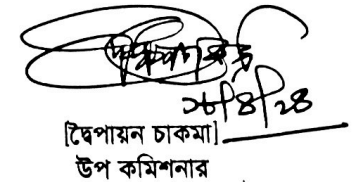 ২৮/৪/২৪
[দ্বৈপায়ন চাকমা]
উপ কমিশনার